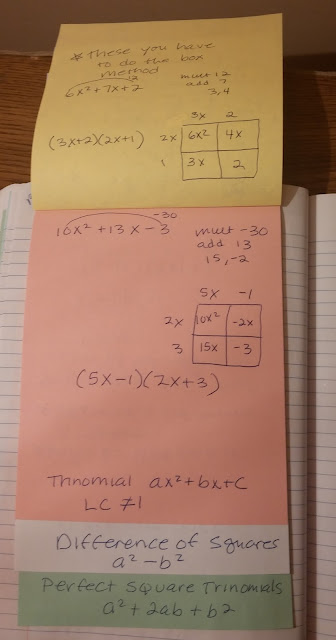 * These you have
to do the box
method
12
6x² + 7x + 2
mult 12
add 7
3, 4
3x 2
(3x+2)(2x+1)
2x 6x² 4x
1 3x 2
-30
10x² + 13x - 3
mult -30
add 13
15, -2
5x -1
2x 10x² -2x
3 15x -3
(5x-1)(2x+3)
Trinomial ax² + bx + C
LC ≠ 1
Difference of Squares
a² - b²
Perfect Square Trinomials
a² + 2ab + b2